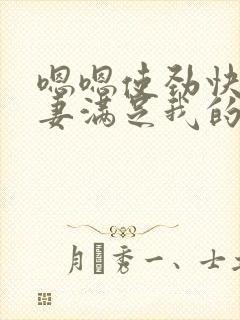 嗯嗯使劲快
妻满足我的
月秀一、士